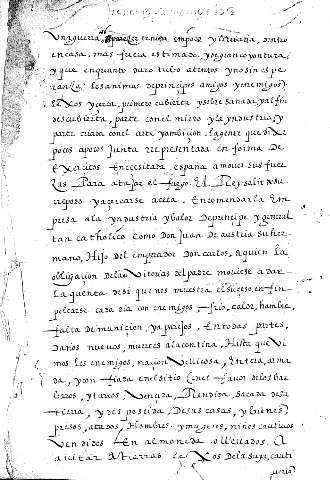 Una guerra, al parecer tenida en poco y liviana, dentro
en casa, mas fuera estimada, y de gran coyuntura,
y que en quanto duro tubo atentos y no sin espe
ranza, los animos de principes amigos y enemigos,
lexos y cerca, primero cubierta y sobresanada, y al fin
descubierta, parte con el miedo y la yndustria, y
parte criada con el arte y ambicion. la gente que dixe
pocos a pocos junta representada en forma de
Exercitos Enecesitada españa a mover sus fuer
zas Para atajar el fuego. El Rey salir de su
reposo y açercarse a ella. Encomendar la Em
presa a
tan catholico como Don Juan de austria su her
mano, Hijo del emperador Don carlos, a quien la
obligaçion de las Vitorias del padre moviese a dar
la quenta de si que nos muestra el suceso, en fin
pelearse cada dia con enemigos, frio, calor, hambre,
falta de municion, y aparejos, En todas partes,
Daños nuevos, muertes a la contina, Hasta que Vi
mos los enemigos, nacion Vellicosa, Entera, arma
da, y confiada en el sitio, con el favor de los bar
beros, y turcos, Vençida, Rendida, sacada de su
tierra, y desposeida, De sus casas, y bienes,
presos, atados, Hombres y mugeres, niños cautivos
Vendidos En almoneda o llevados, A
avitar A tierras lexos De la suya, cauti